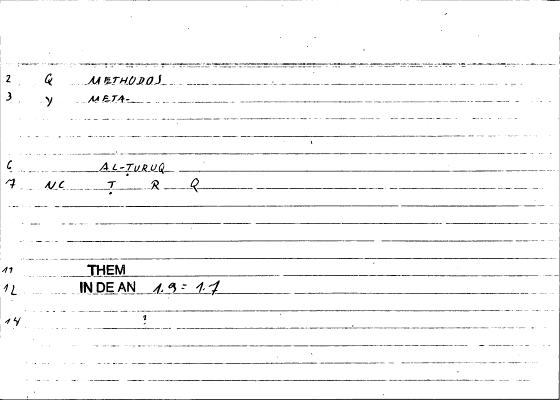 2 G METHODOS
3 Y META-
6 AL-ṬURUQ
7 NC Ṭ R Q
11 THEM
12 IN DE AN 1.9 = 1.7
14 ?